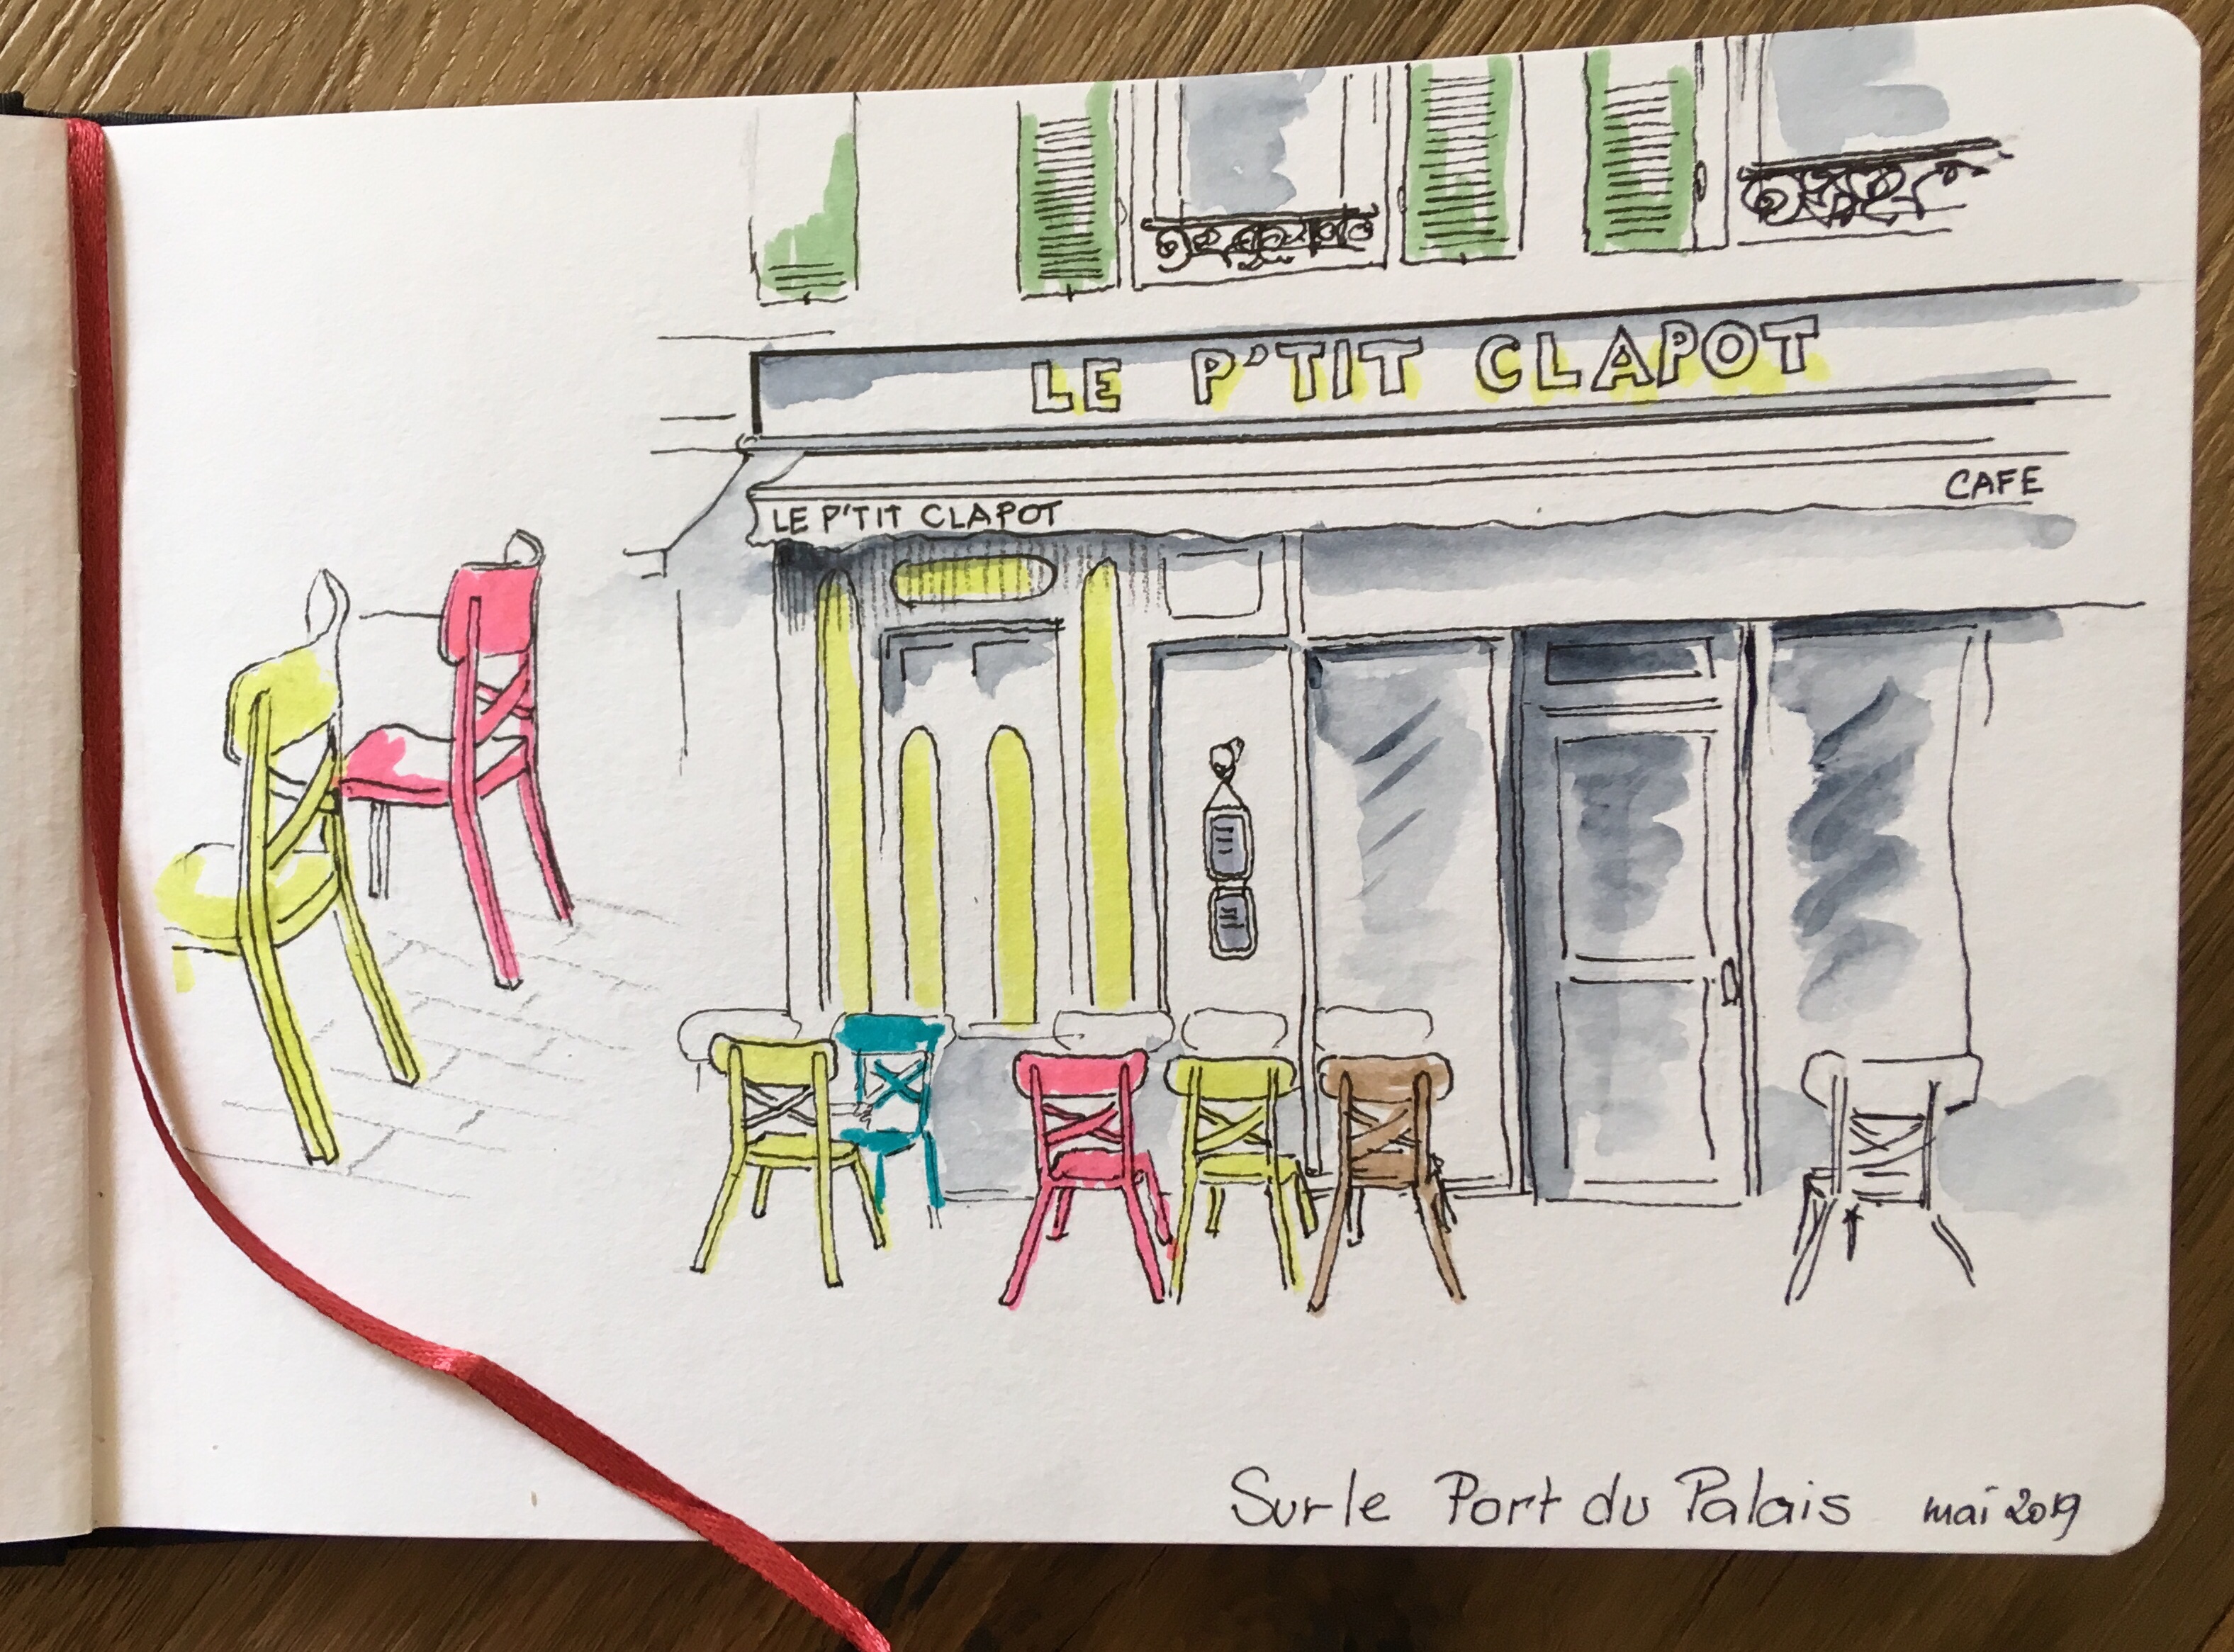 LE P'TIT CLAPOT
LE P'TIT CLAPOT CAFE
Sur le Port du Palais mai 2019